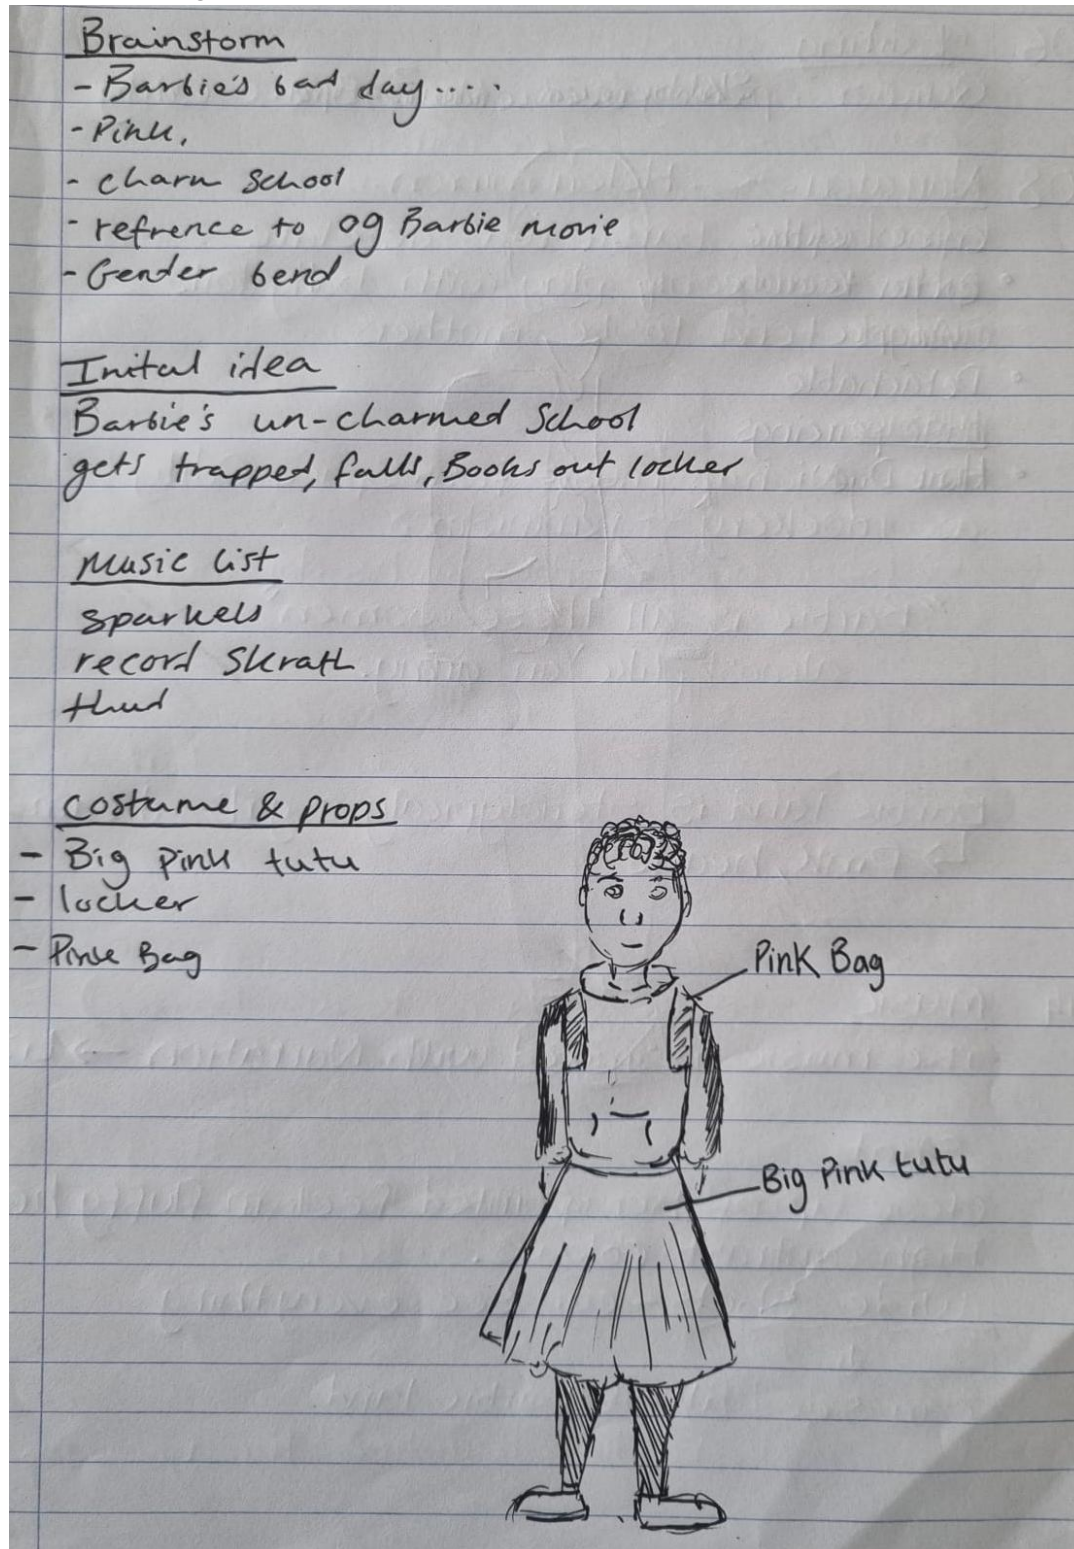 Brainstorm
- Barbie's bad day....
- Pink,
- charm school
- refrence to og Barbie movie
- Gender bend
Inital idea
Barbie's un-charmed School
gets trapped, falls, Books out locker
Music list
sparkels
record Skrath
thud
costume & props
- Big Pink tutu
- locker
- Pink Bag
Pink Bag
Big Pink tutu